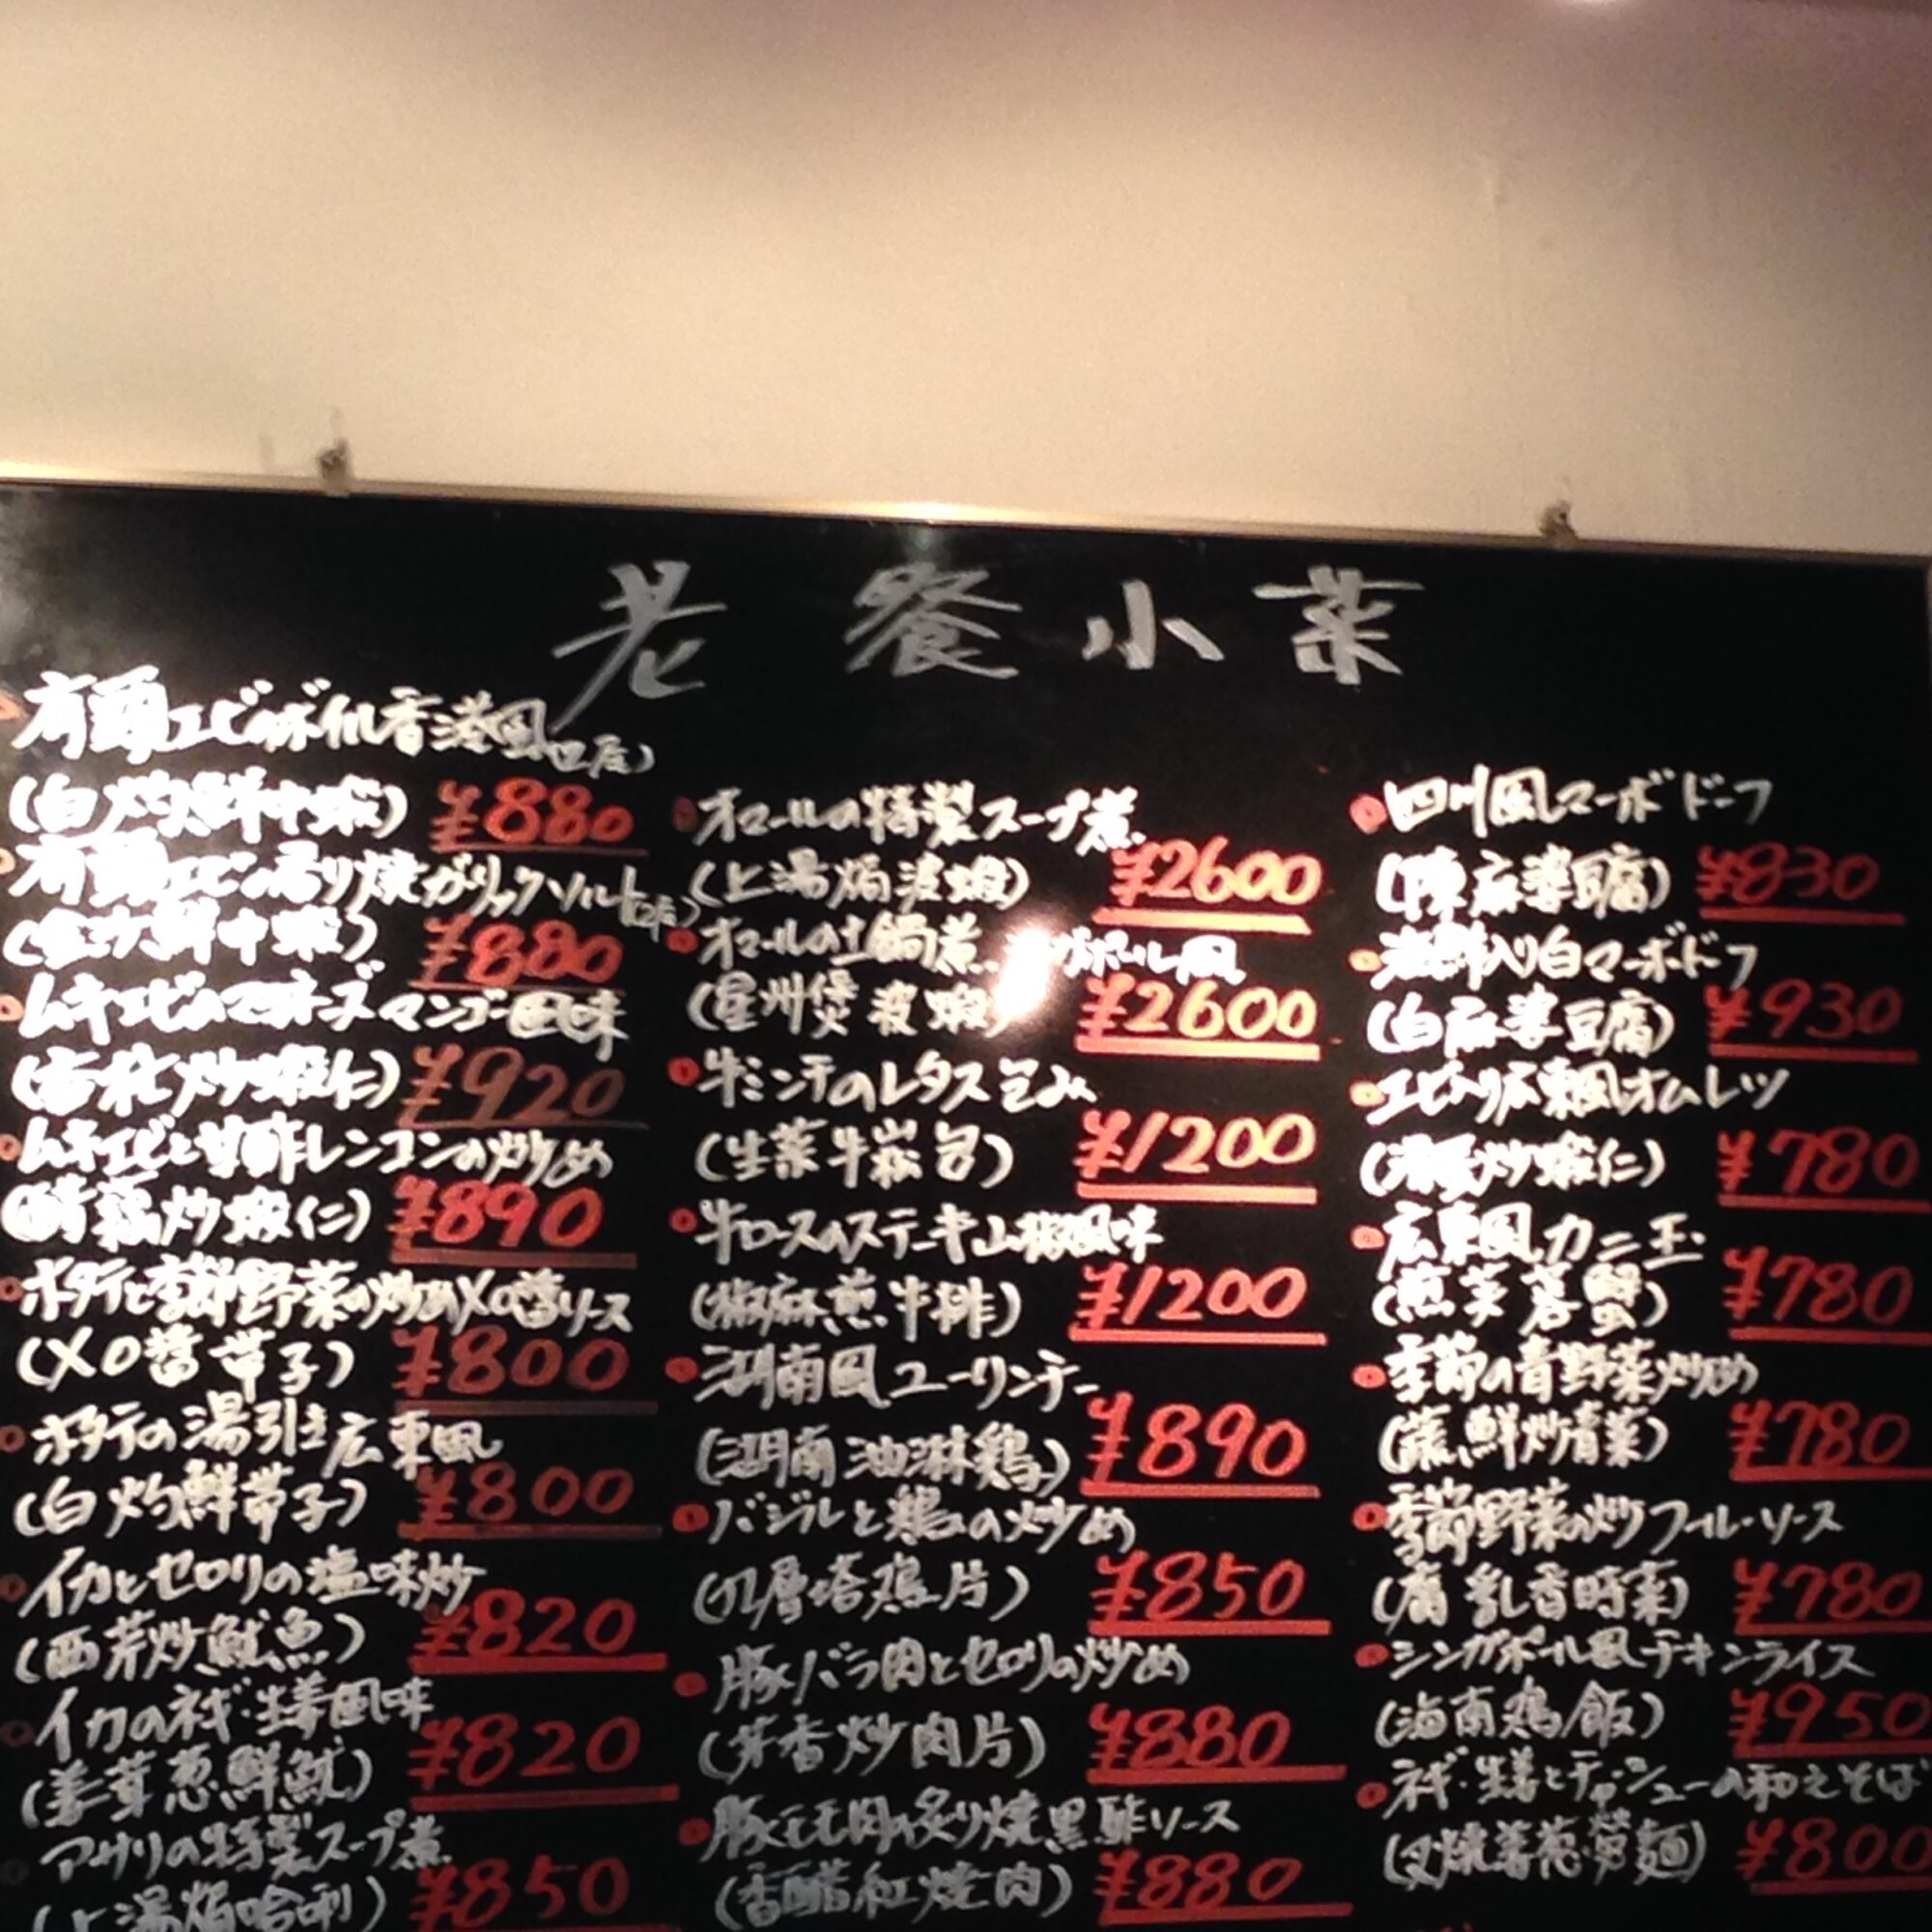 老餐小菜
有頭エビのボイル香港風
(白灼鮮中蝦) ¥880
有頭エビの香り焼ガーリックソルト
¥880
ムキエビのマヨネーズマンゴー風味
¥920
ムキエビと甘酢レンコンの炒め
炒蝦仁) ¥890
ホタテと季節野菜の炒めXO醤ソース
(XO醤帯子) ¥800
ホタテの湯引き広東風
(白灼鮮帯子) ¥800
イカとセロリの塩味炒
(西芹炒魷魚) ¥820
イカのネギ・生姜風味
(姜茸葱鮮魷) ¥820
アサリの特製スープ煮
(上湯焗哈唎) ¥850
オマールの特製スープ煮
(上湯焗波蝦) ¥2600
オマールの土鍋煮 シンガポール風
(星州煲波蝦) ¥2600
牛ミンチのレタス包み
(生菜牛崧包) ¥1200
牛ロースのステーキ山椒風味
(椒麻煎牛排) ¥1200
湖南風ユーリンチー
(湖南油淋鶏) ¥890
バジルと鶏の炒め
(九層塔鶏片) ¥850
豚バラ肉とセロリの炒め
(芹香炒肉片) ¥880
豚モモ肉の炙り焼黒酢ソース
(香醋紅焼肉) ¥880
四川風マーボドーフ
(陳麻婆豆腐) ¥830
海鮮入り白マーボドーフ
(白麻婆豆腐) ¥930
エビ入り広東風オムレツ
炒蝦仁) ¥780
広東風カニ玉
(煎芙蓉蟹) ¥780
季節の青野菜炒め
鮮炒青菜) ¥780
季節野菜の炒フールーソース
(腐乳香時菜) ¥780
シンガポール風チキンライス
(海南鶏飯) ¥950
ネギ・生姜とチャーシューの和えそば
(叉焼姜葱撈麺) ¥800